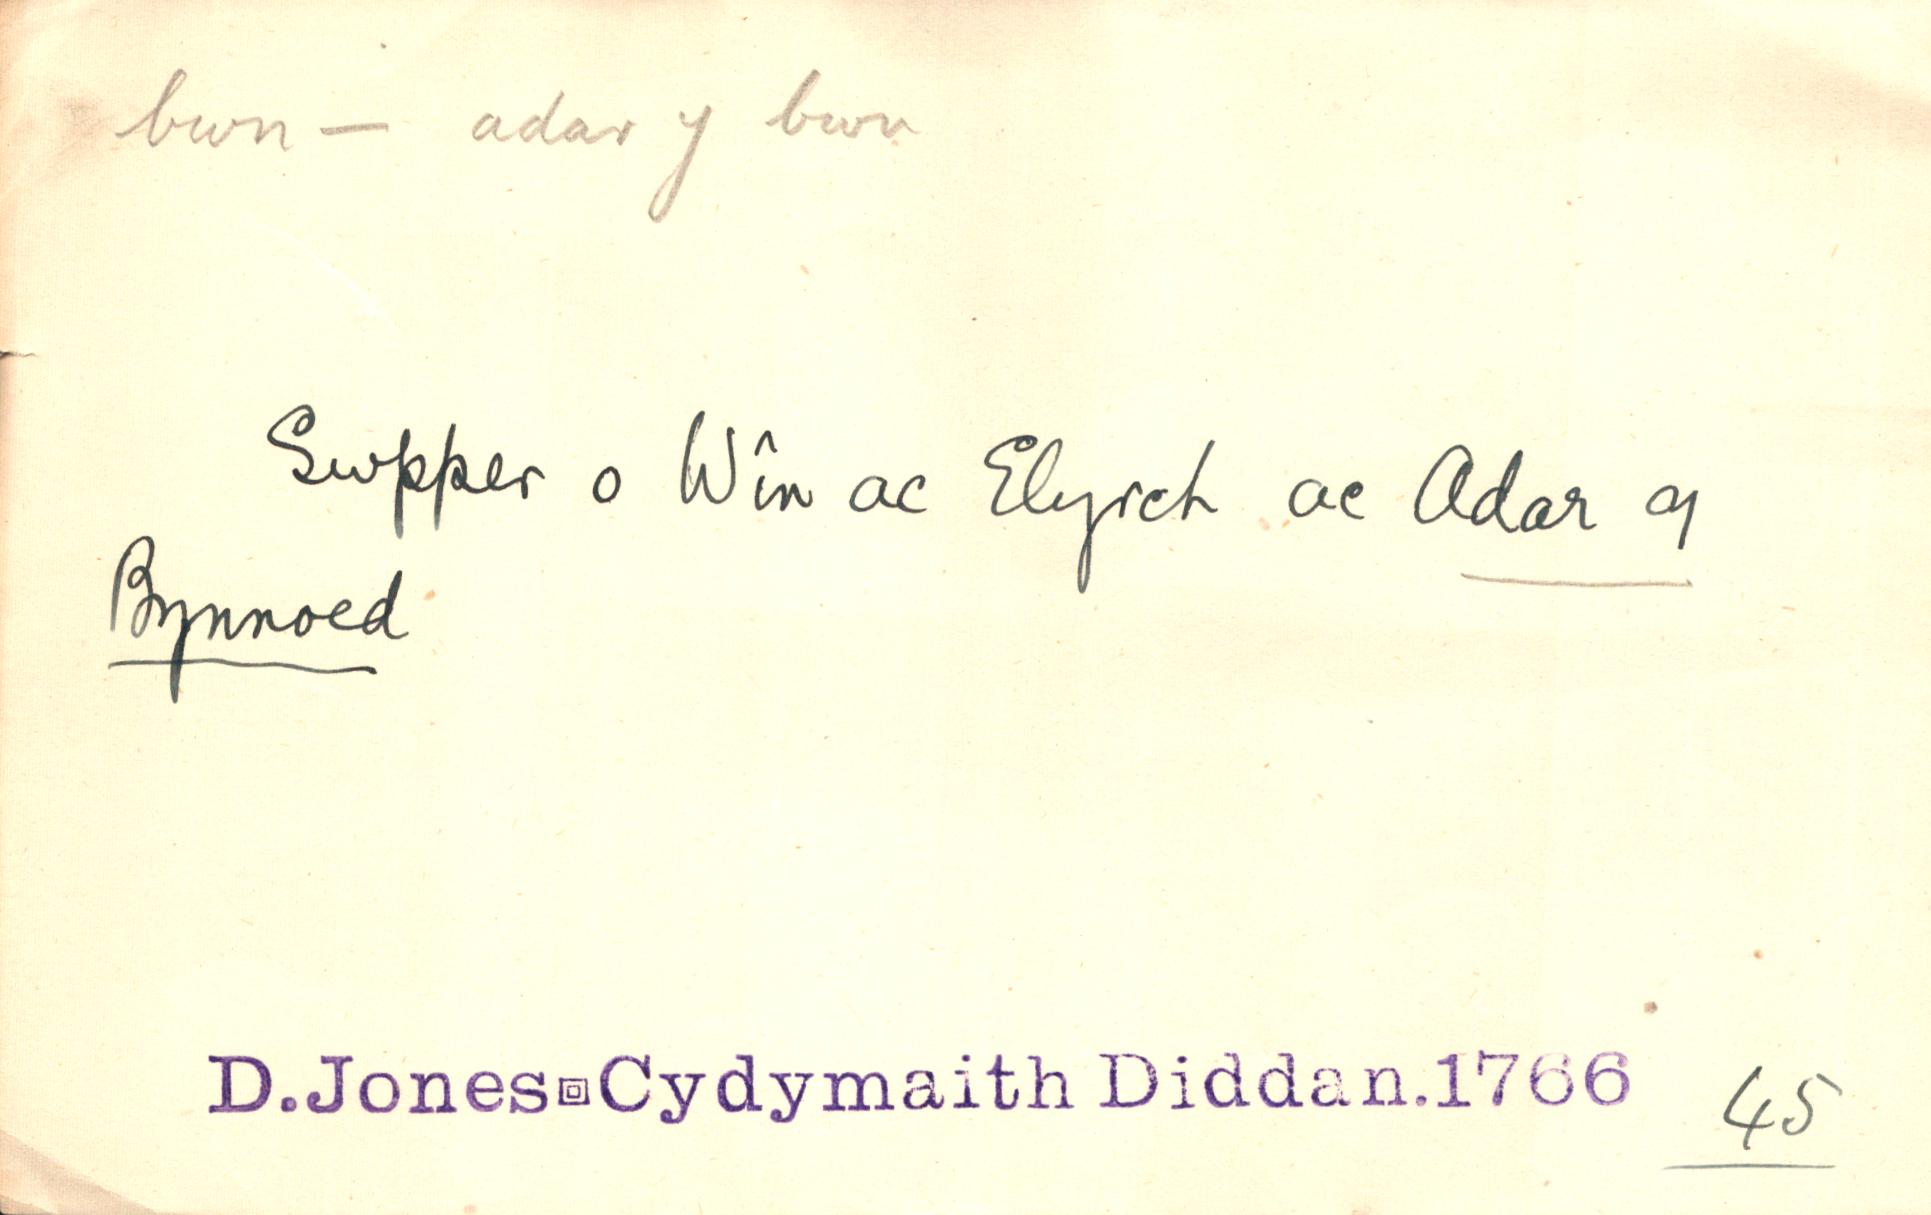 bwn — adar y bwn
Swpper o Wîn ac Elyrch ac Adar y
Bynnoed
D. Jones▣Cydymaith Diddan. 1766
45